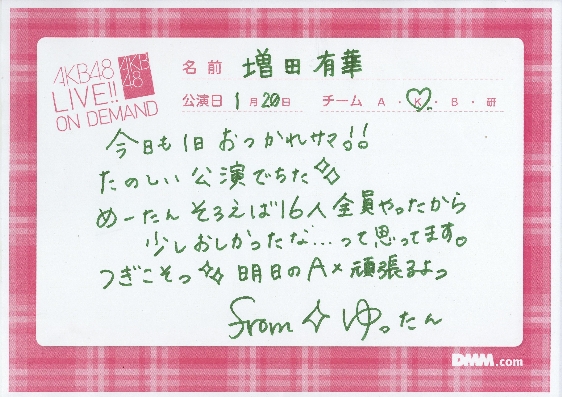 AKB48
LIVE!!
ON DEMAND
AKB
48
名前 増田有華
公演日 1月20日 チーム A・K・B・研
今日も1日おつかれサマ!!
たのしい公演でちた✧✧
めーたんそろえば16人全員やったから
少しおしかったな…って思ってます。
つぎこそっ✧✧明日のA×頑張るよっ
from✧ゆったん
DMM.com